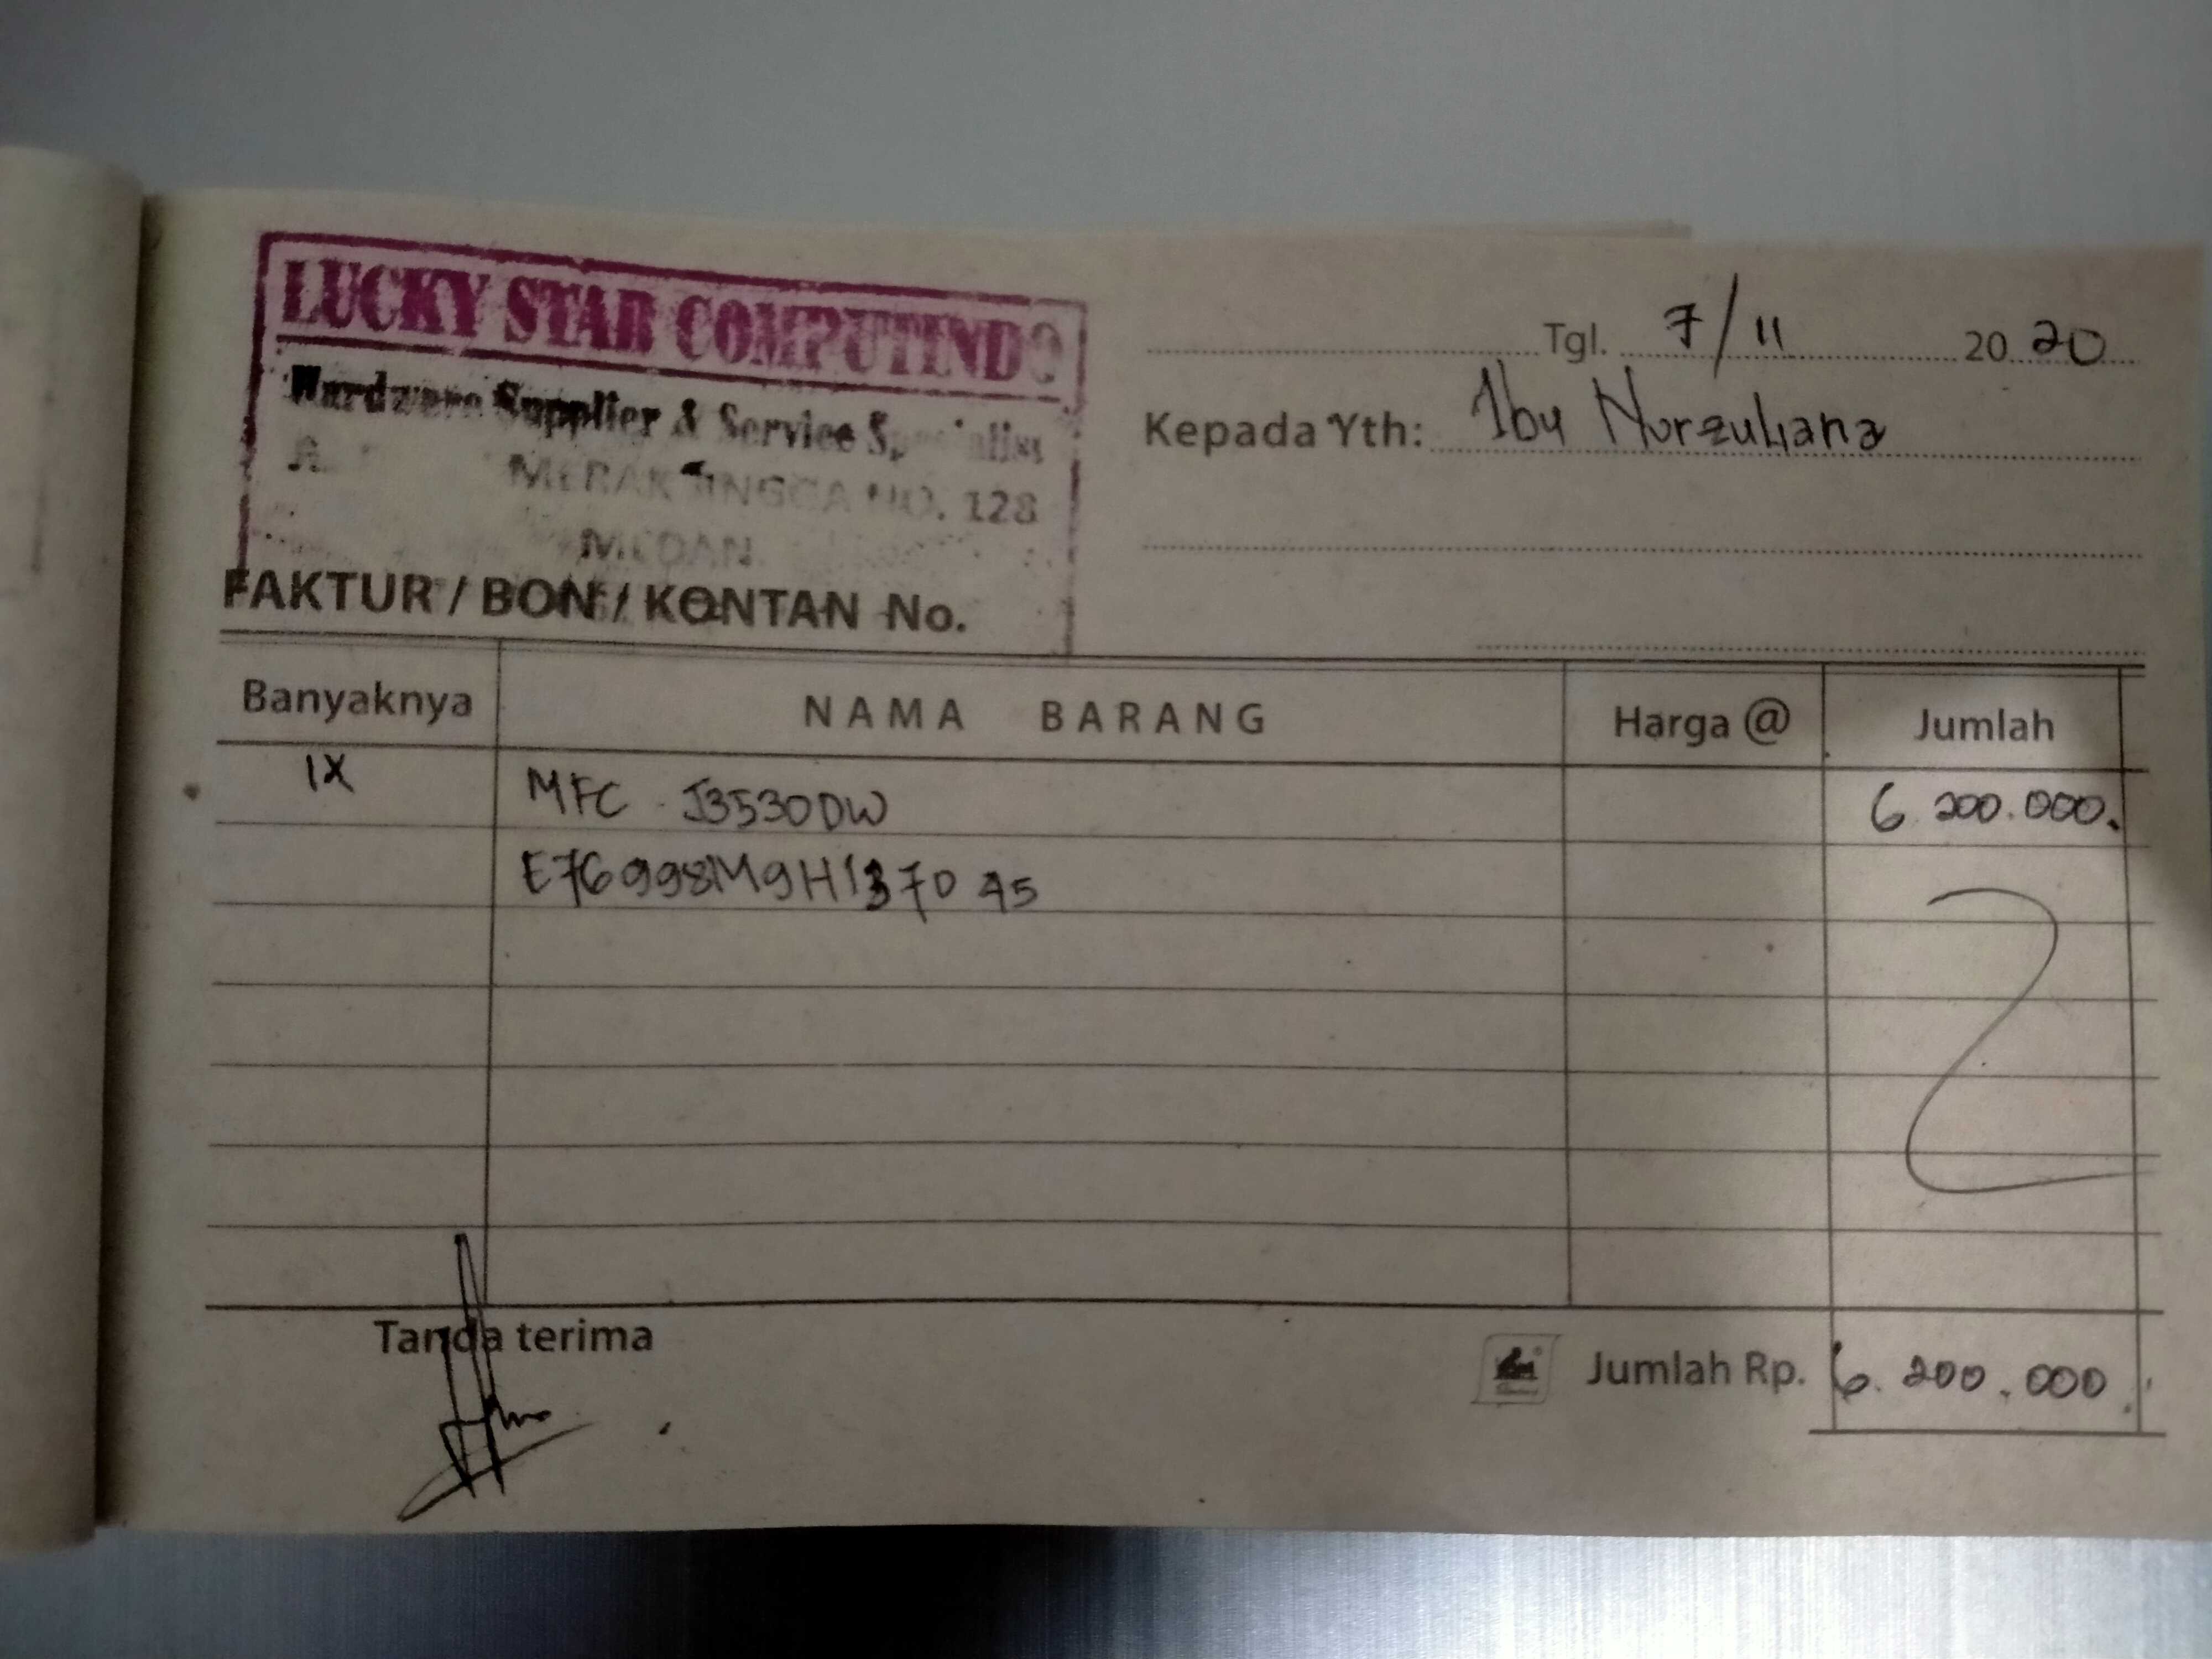 LUCKY STAR COMPUTINDO
Hardware Supplier & Service Specialist
MERAK JINGGA NO. 128
MEDAN
Tgl. 7/11 2020
Kepada Yth: Ibu Nurzuliana
FAKTUR / BON / KONTAN No.
Banyaknya NAMA BARANG Harga @ Jumlah
1X MFC J3530DW 6.200.000.
E76998M9H137045
Tanda terima
Jumlah Rp. 6.200.000